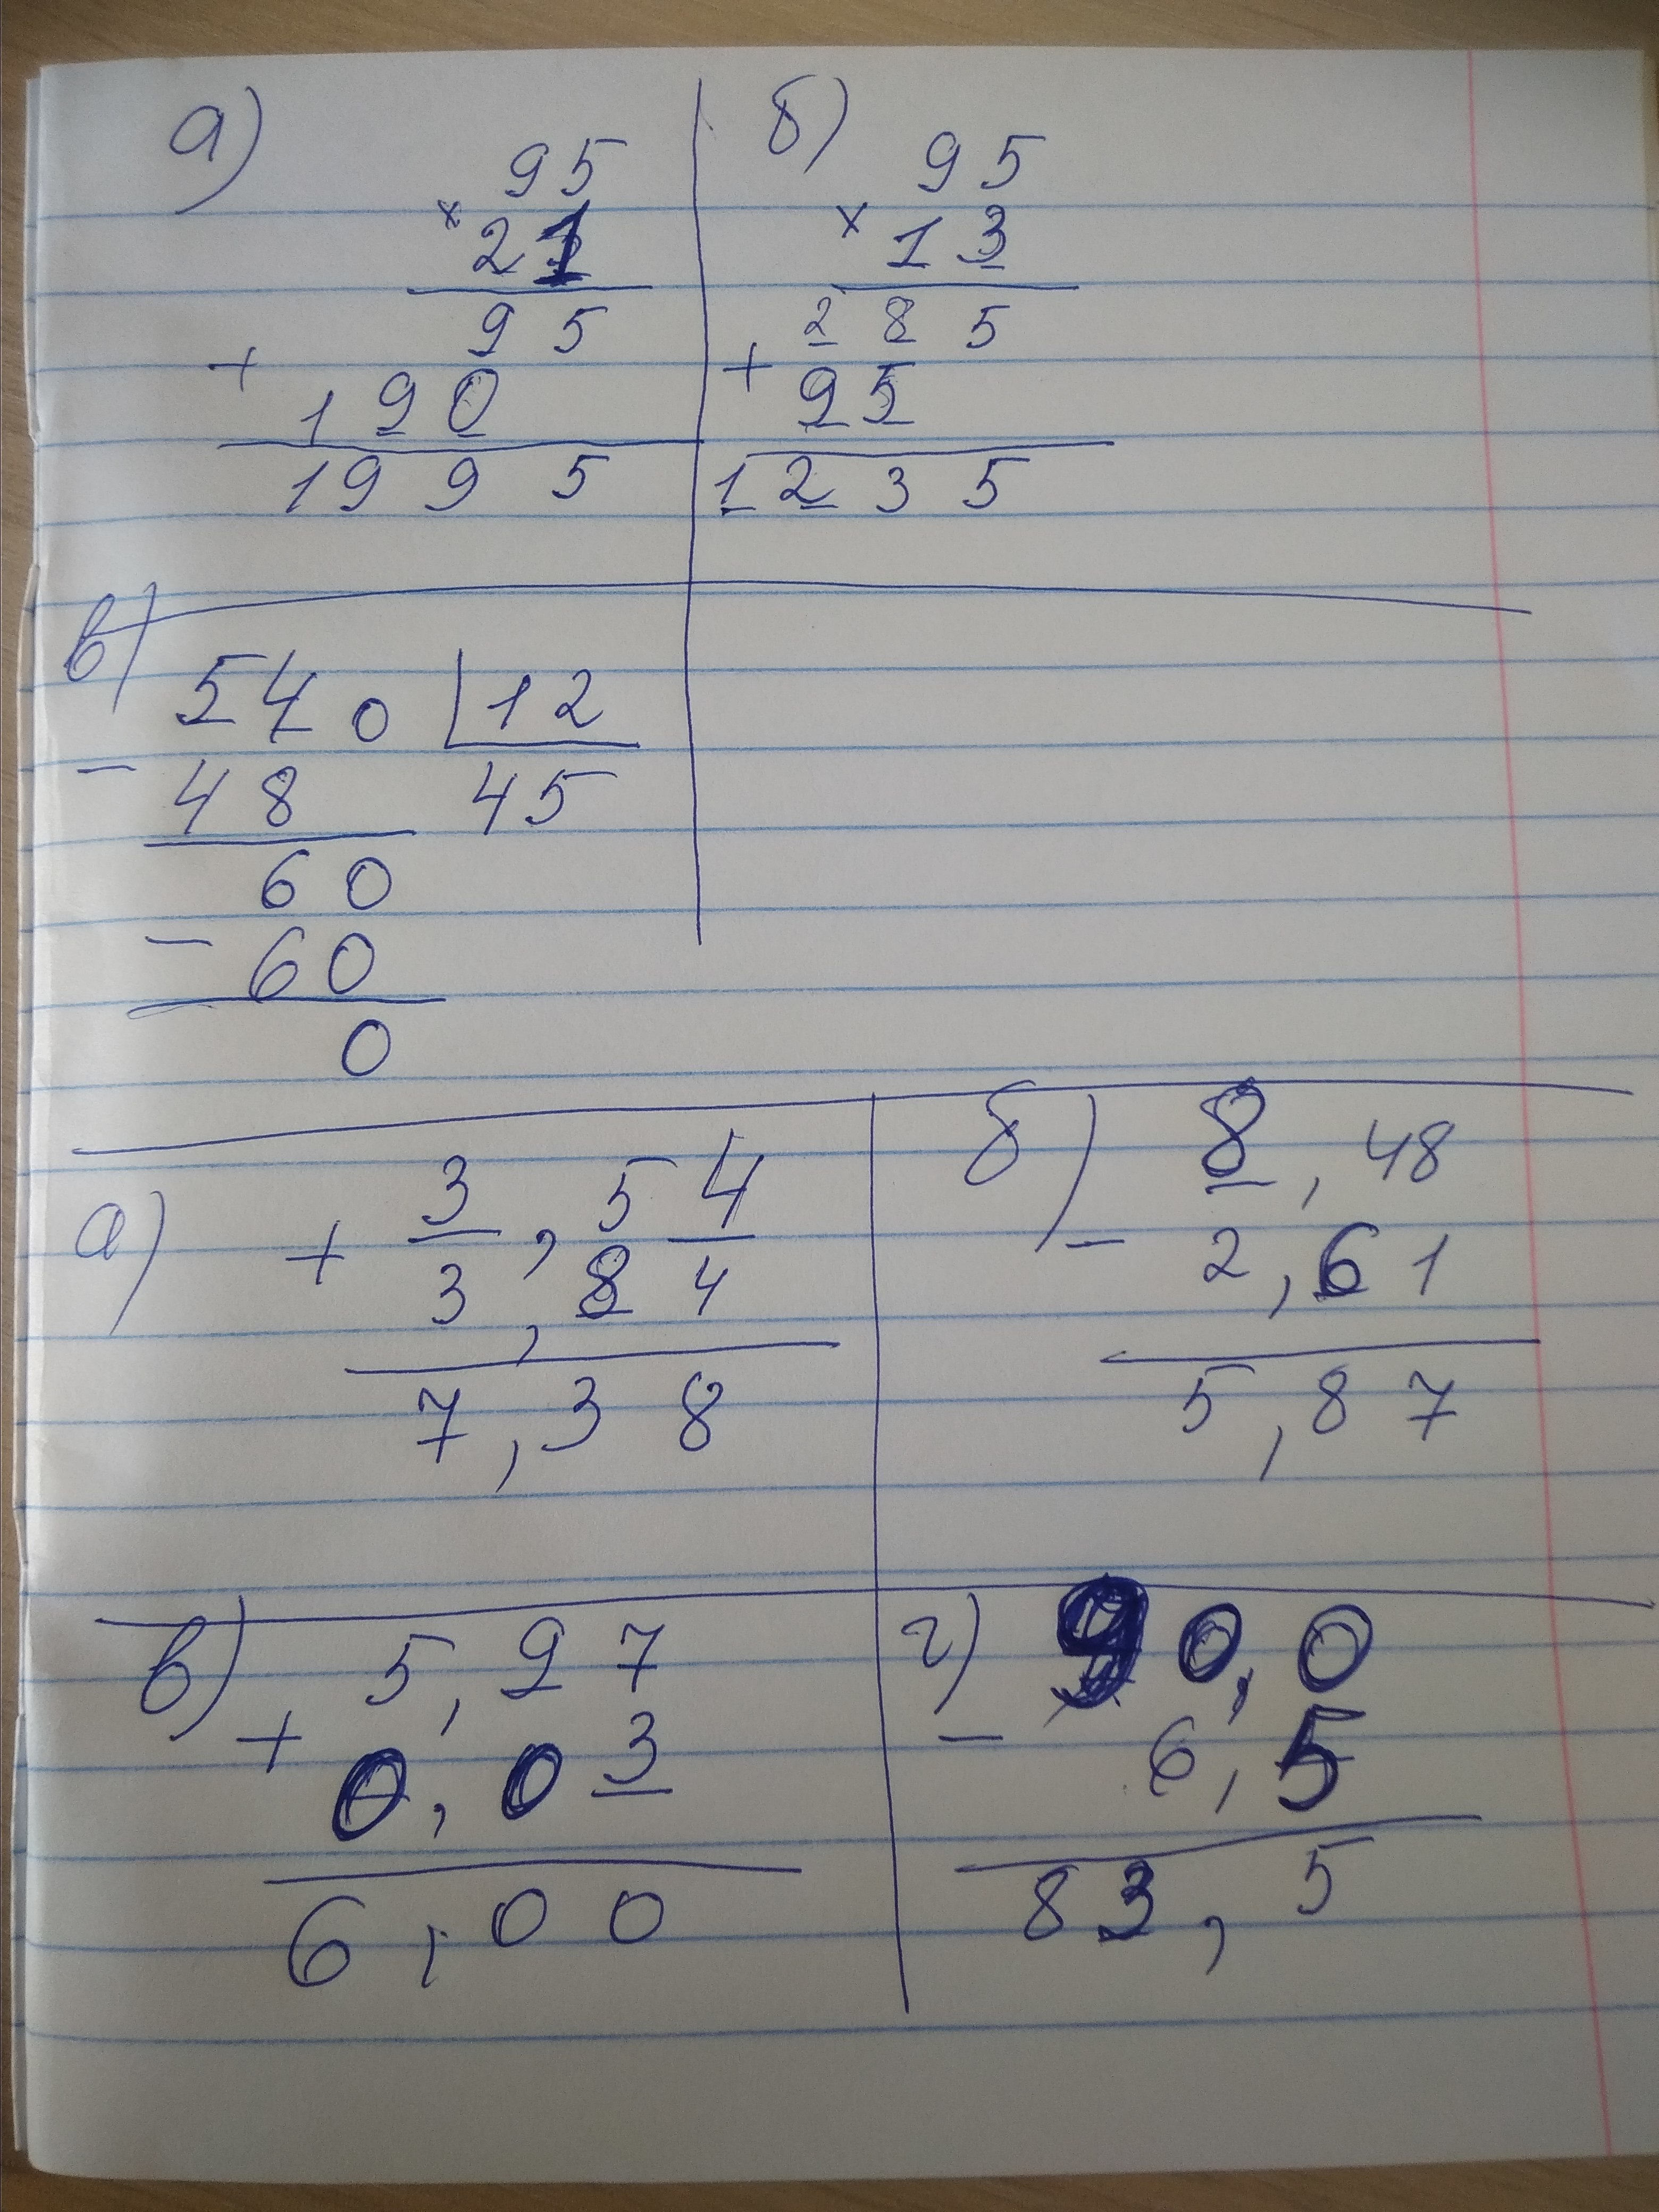 а)
95
× 21
95
+ 190
1995
б)
95
× 13
285
+ 95
1235
в)
540 | 12
- 48 45
60
- 60
0
а)
3,54
+ 3,84
7,38
б)
8,48
- 2,61
5,87
в)
5,97
+ 0,03
6,00
г)
90,0
- 6,5
83,5